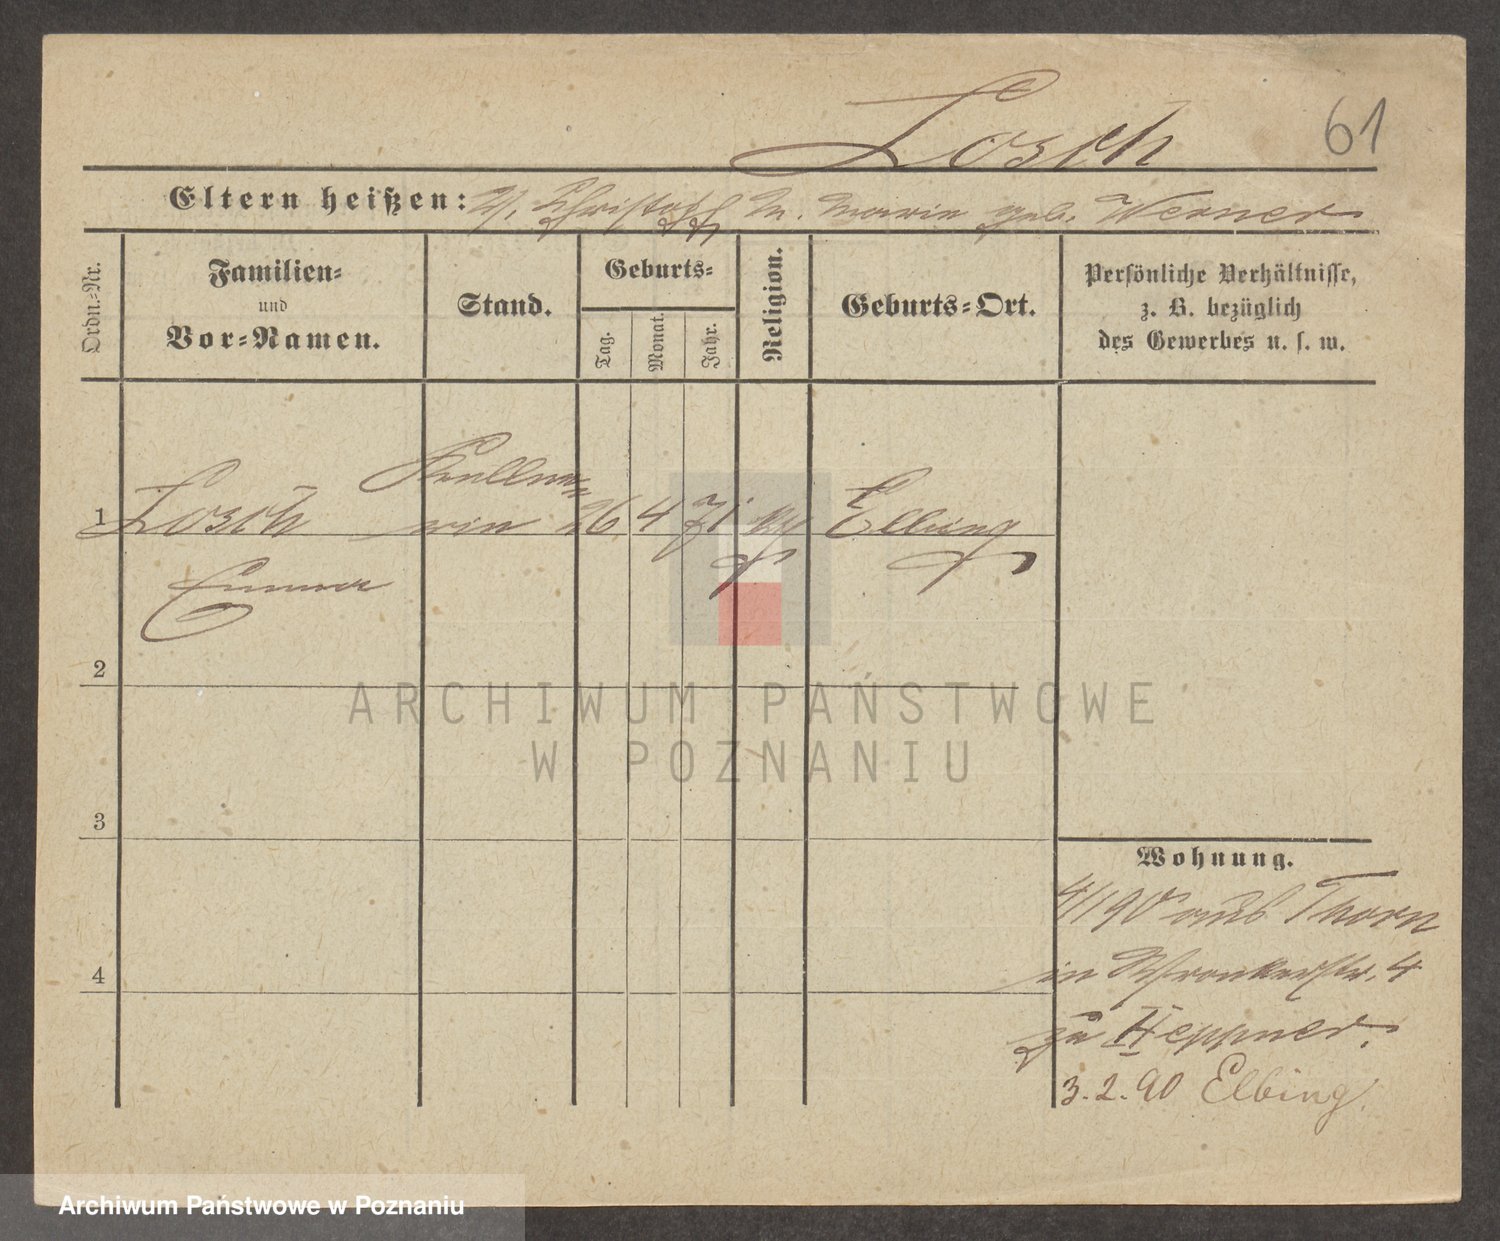 Losch 61
Eltern heißen: V. Christoph M. Marie geb. Werner
Ordn.-Nr.
Familien-
und
Vor-Namen.
Stand.
Geburts-
Tag.
Monat.
Jahr.
Religion.
Geburts-Ort.
Persönliche Verhältnisse,
z. B. bezüglich
des Gewerbes u. s. w.
Kellne-
1 Losch rin 26 4 71 Elbing
Emma
2
3
4
Wohnung.
4/1 90 aus Thorn
in Wronkerstr. 4
zu Heppner.
3.2.90 Elbing.
ARCHIWUM PAŃSTWOWE
W POZNANIU
Archiwum Państwowe w Poznaniu